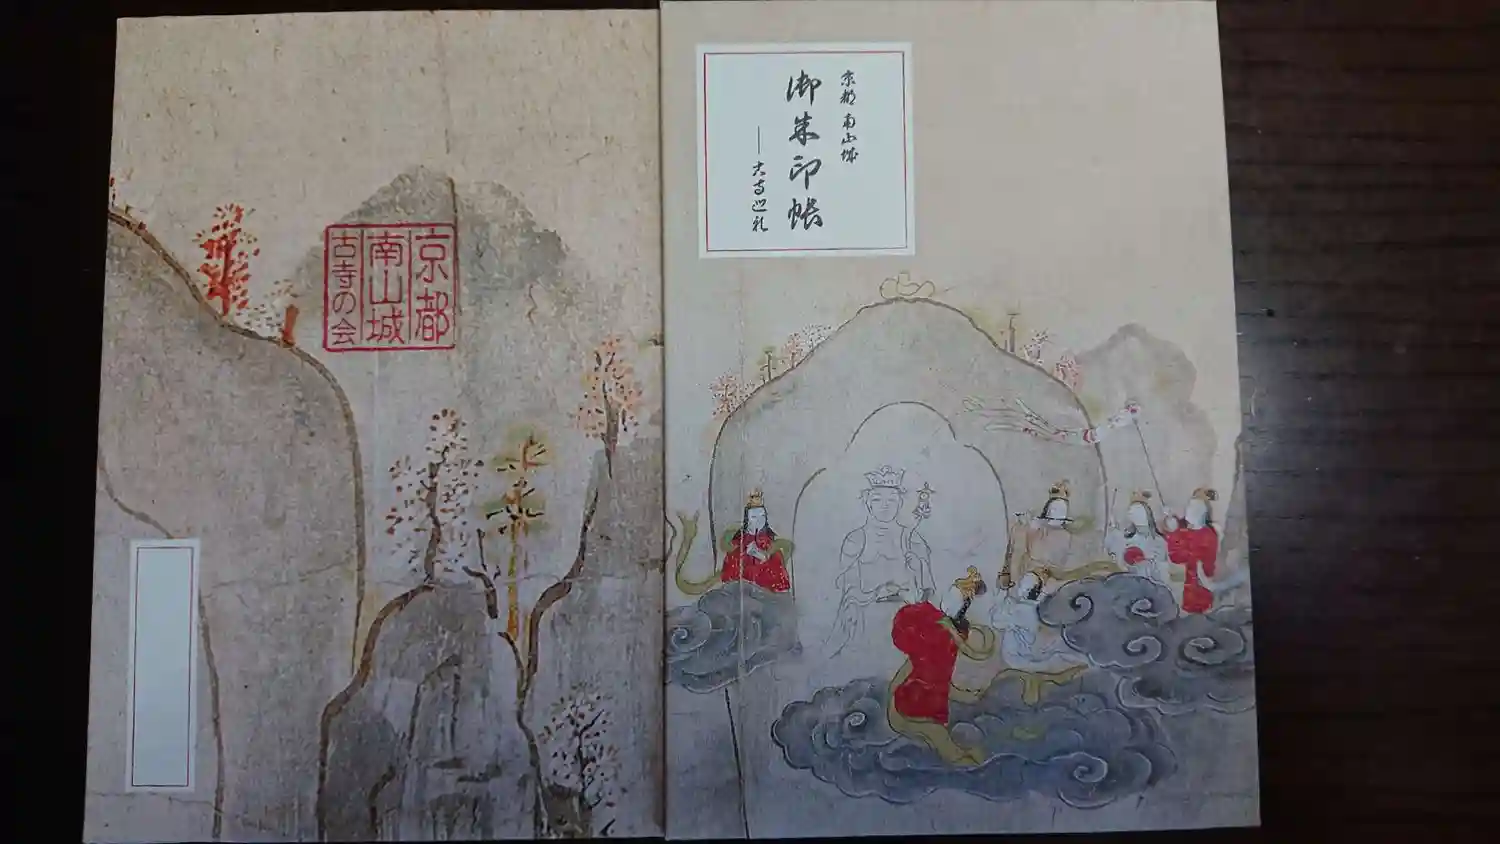 京都 南山城
御朱印帳
―古寺巡礼
京都
南山城
古寺の会